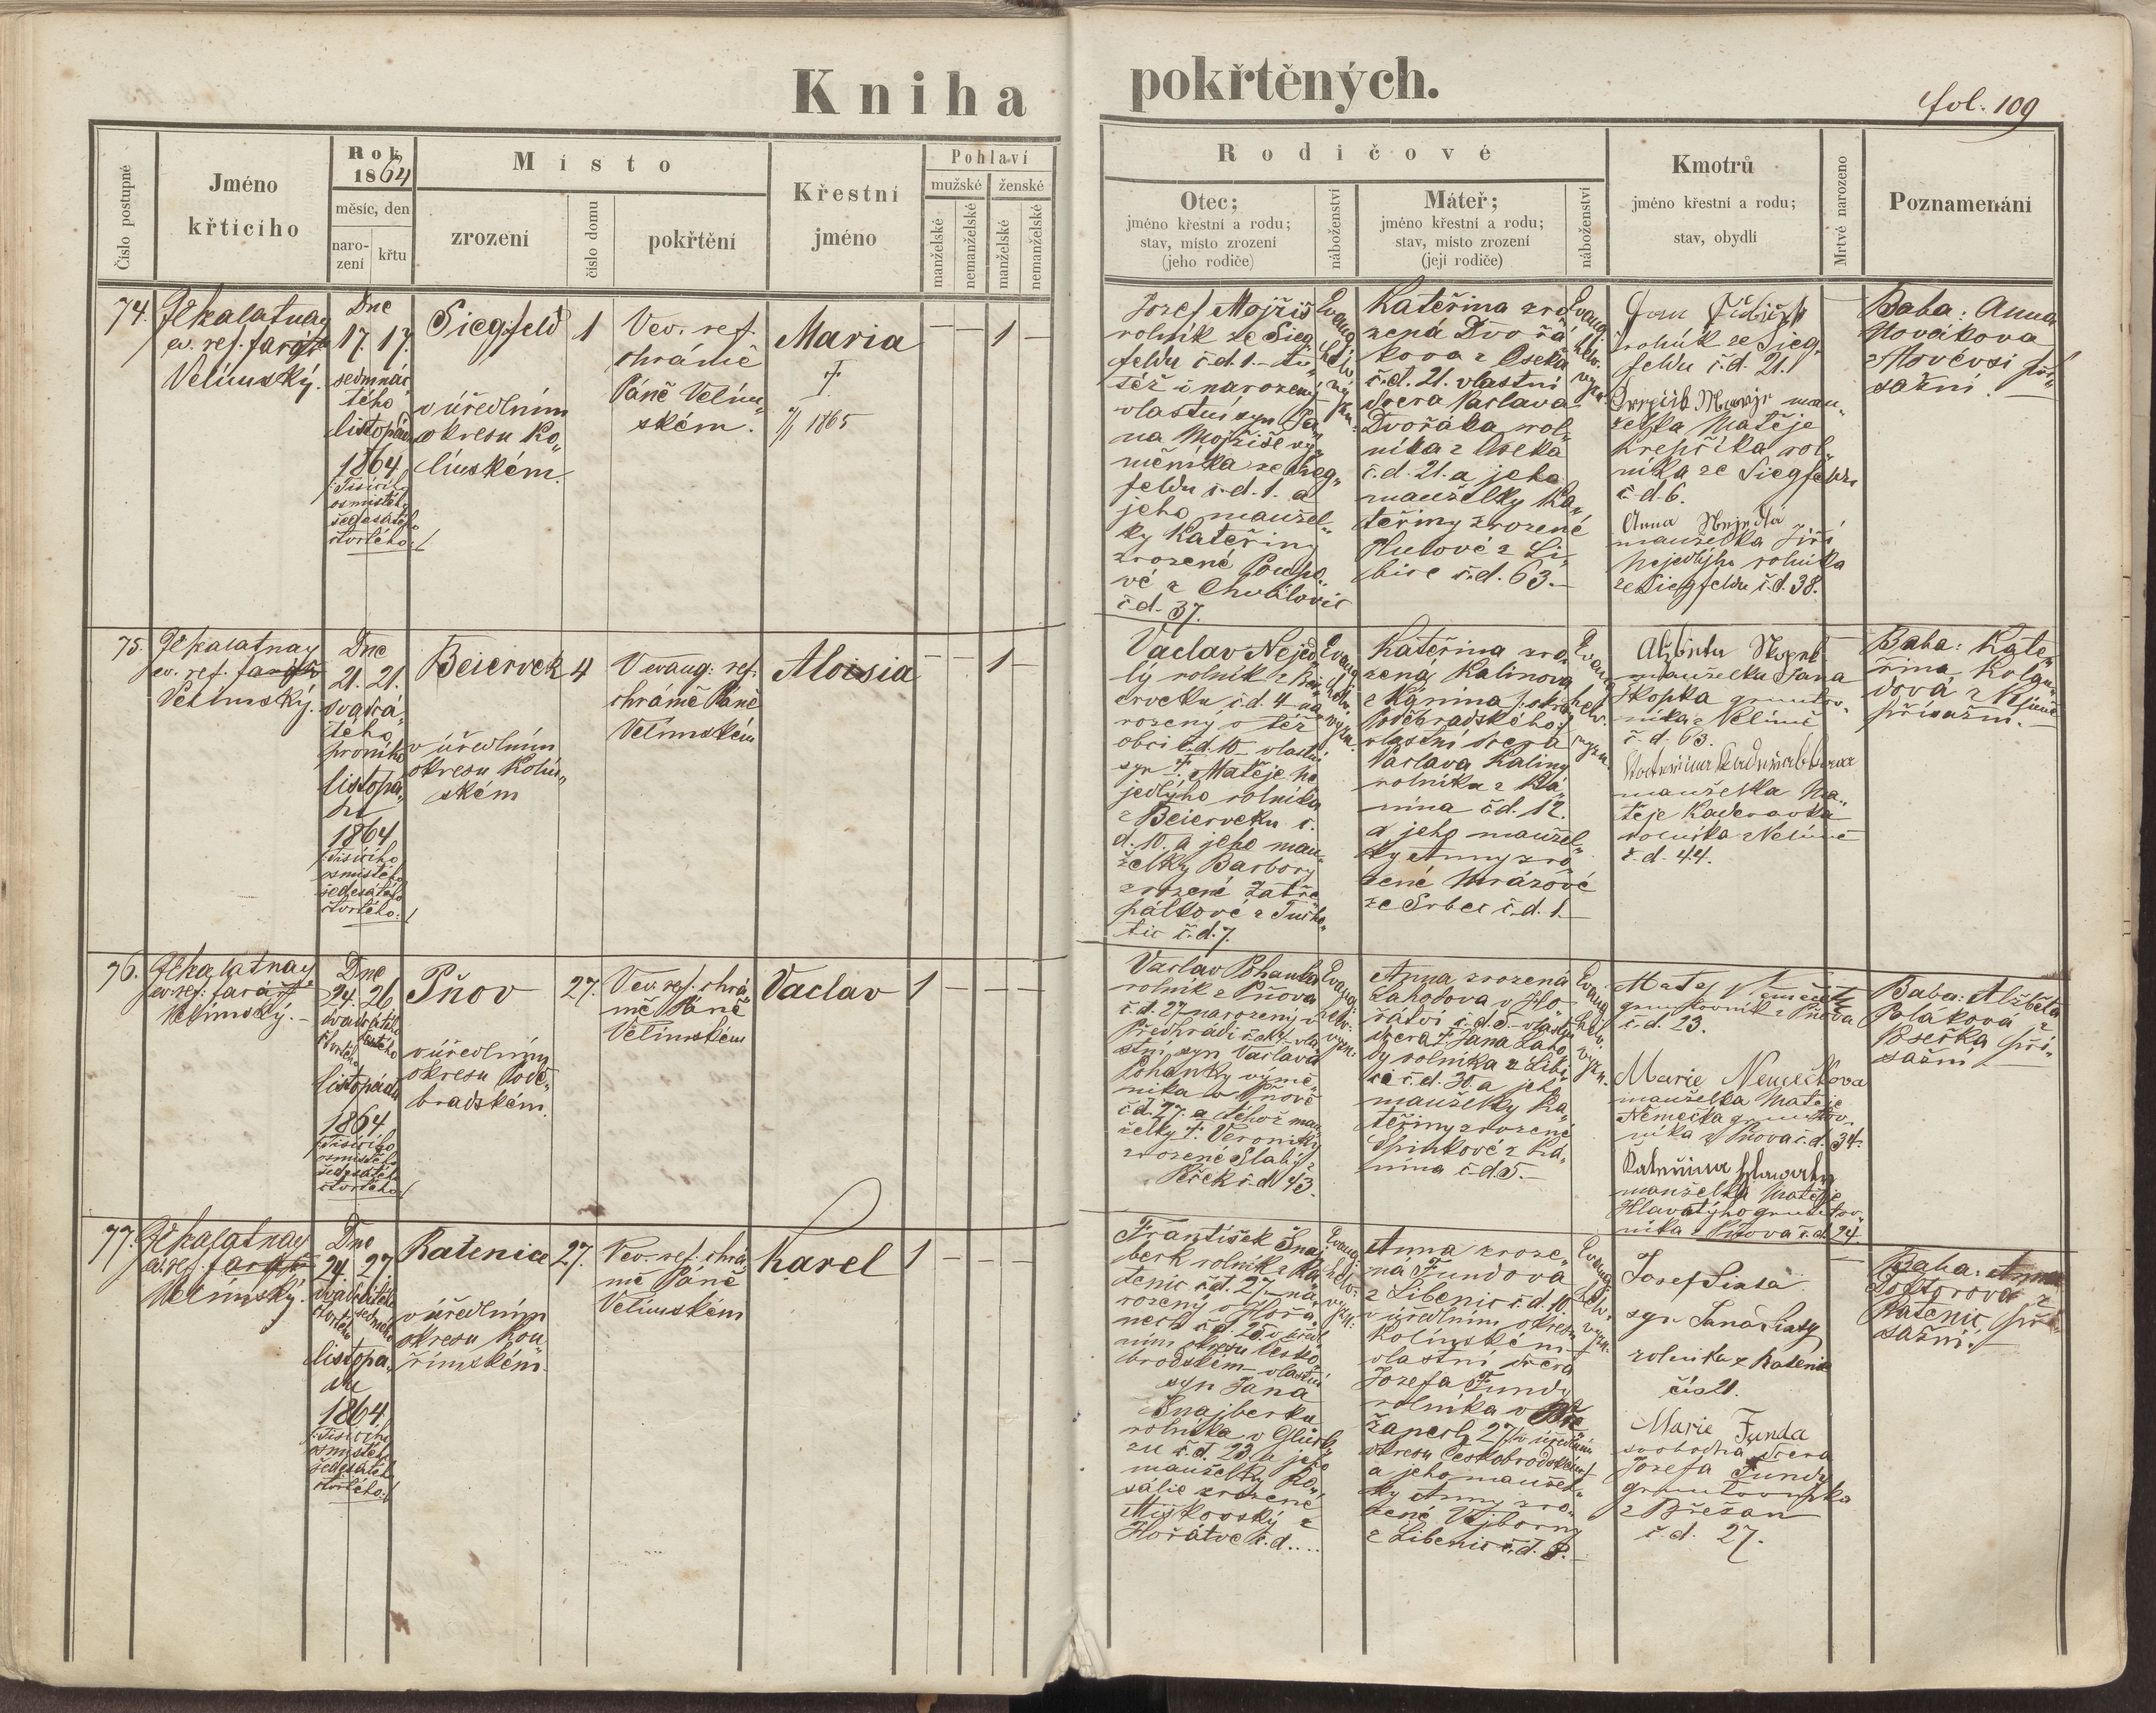 Kniha pokřtěných.
fol. 109
Číslo postupné
Jméno
křticího
Rok
1864
měsíc, den
naro-
zení
křtu
Místo
zrození
číslo domu
pokřtění
Křestní
jméno
Pohlaví
mužské
ženské
manželské
nemanželské
manželské
nemanželské
Rodičové
Otec;
jméno křestní a rodu;
stav, místo zrození
(jeho rodiče)
náboženství
Máteř;
jméno křestní a rodu;
stav, místo zrození
(její rodiče)
náboženství
Kmotrů
jméno křestní a rodu;
stav, obydlí
Mrtvé narozeno
Poznamenání
74.
ev. ref. farář
Velimský.
Dne
17. 17.
sedmnác„
tého
listopadu
1864
/:Tisícího
osmistého
šedesátého
čtvrtého:/
Siegfeld
v úředním
okresu Ko„
línském.
1
V ev. ref.
chrámě
Páně Velim„
ském.
Maria
†
1865
— — 1 —
Jozef Mojžiš
rolník ze Sieg„
feldu č.d. 1. tu„
též i narozený
vlastní syn Ja„
na Mojžíše vý„
měníka ze Sieg„
feldu č.d. 1. a
jeho manžel„
ky Kateřiny
zrozené
vé z Chvalovic
č.d. 37.
Evang.
helv.
vyzn.
Kateřina zro„
zená Dvořá„
kova z Oseka
č.d. 21. vlastní
dcera Václava
Dvořáka rol„
níka z Oseka
č.d. 21. a jeho
manželky Ka„
teřiny zrozené
z Li„
bice č.d. 63.—
Evang.
helv.
vyzn.
Jan
rolník ze Sieg„
feldu č.d. 21.
man„
želka Matěje
Krepčíka rol„
níka ze Siegfeldu
č.d. 6.
Anna Nejedlá
manželka Jiří
Nejedlýho rolníka
ze Siegfeldu č.d. 38.
Baba: Anna
Nováková
z Novévsi pří„
sažní.
75.
ev. ref. farář
Velimský.
Dne
21. 21.
dvacá„
tého
prvního
listopa„
du
1864
/:Tisícího
osmistého
šedesátého
čtvrtého:/
Beiervek
v úředním
okresu Kolín„
ském
4
V evang: ref.
chrámě Páně
Velimském
Aloisia
— — 1 —
Václav Nejed„
lý rolník z Bei„
erveku č.d. 4 na„
rozený v též
obci č.d. 10. vlastní
syn † Matěje Ne„
jedlýho rolníka
z Beierveku č.
d. 10. a jeho man„
želky Barbory
zrozené Zatře„
pálkové z
tic č.d. 7.
Evang.
helv.
vyzn.
Kateřina zro„
zená Kalinova
z Kánína /:okresu
Poděbradského:/
vlastní dcera
Václava Kaliny
rolníka z Ká„
nína č.d. 12.
a jeho manžel„
ky Anny zro„
zené Mrázové
ze Srbec č.d. 1.—
Evang.
helv.
vyzn.
Alžbieta
manželka Jana
Škopka gruntov„
níka z Velimě
č.d. 63.
manželka Ma„
těje Kaderavka
rolníka z Velimě
č.d. 44.
Baba: Kate„
řina
dová z Velimě
přísažní.—
76.
ev. ref. farář
Velimský.—
Dne
24. 26
dvacátého
čtvrtého šestého
listopadu
1864
/:Tisícího
osmistého
šedesátého
čtvrtého:/
Pňov
v úředním
okresu Podě„
bradském.
27.
V ev. ref. chrá„
mě Páně
Velimském
Vaclav
1 — — —
Václav Pohanka
rolník z Pňova
č.d. 27. narozený v
Předhradí č.d. vla„
stní syn Václava
Pohanky výmě„
níka v Pňově
č.d. 27. a téhož man„
želky †. Veroniky
zrozené Slabý z
Peček č.d. 43.
Evang.
helv.
vyzn.
Anna zrozená
Lahodova v Ho„
řátvi č.d. 5. vlastní
dcera †. Jana Laho„
dy rolníka z Libi„
ce č.d. 30. a jeho
manželky Ka„
teřiny zrozené
Špinkové z Ká„
nína č.d. 5.—
Evang.
helv.
vyzn.
Matej Nemeček
gruntovník z Pňova
č.d. 23.
Marie Nemečkova
manželka Matěje
Němečka gruntov„
níka z Pňova č.d. 34.
Kateřina Hlawaty
manželka Matěje
Hlavatýho gruntov„
níka z Pňova č.d. 24.
Baba: Alžběta
Poláková z
Osečka pří„
sažní.—
77.
ev. ref. farář
Velimský.
Dne
24. 27
dvacátého
čtvrtého sedmého
listopa„
du
1864.
/:Tisícího
osmistého
šedesátého
čtvrtého:/
Ratenice
v úředním
okresu Kou„
řimském.
27.
V ev. ref. chrá„
mě Páně
Velimském
Karel
1 — — —
František Šnaj„
berk rolník z Ra„
tenic č.d. 27. na„
rozený v
nech č.d. 25. v úřed„
ním okresu Česko„
brodském vlastní
syn Jana
Šnajberka
rolníka v
č.d. 23. a jeho
manželky Ro„
sálie zrozené
Miškovský z
Hořátve č.d....
Evang.
helv.
vyzn.
Anna zroze„
ná Fundova
z Libenic č.d. 10.
v úředním okresu
Kolínském
vlastní dcera
Jozefa Fundy
rolníka v Bře„
žanech 27. /:v úředním
okresu Českobrodském:/
a jeho manžel„
ky Anny zro„
zené Výborny
z Libenic č.d. 8.—
Evang.
helv.
vyzn.
Josef
syn Jana
rolníka z Ratenic
čís 21.
Marie Funda
svobodná dcera
Jozefa Fundy
gruntovníka
z Břežan
č.d. 27.
Baba: Anna
Doktorova z
Ratenic pří„
sažní.—